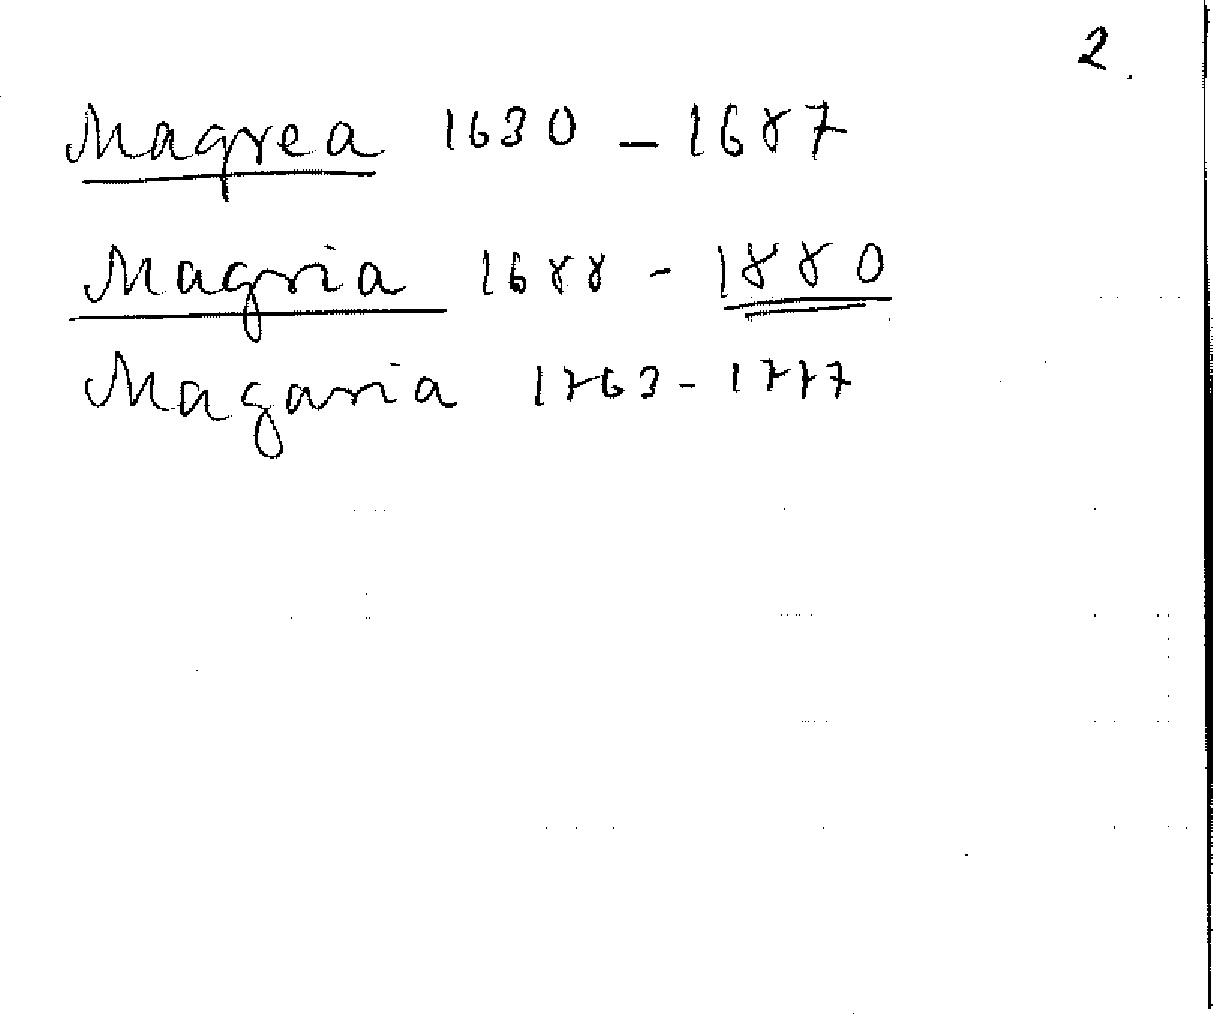 2.
Magrea 1630 - 1687
Magria 1688 - 1880
Magaria 1763 - 1777